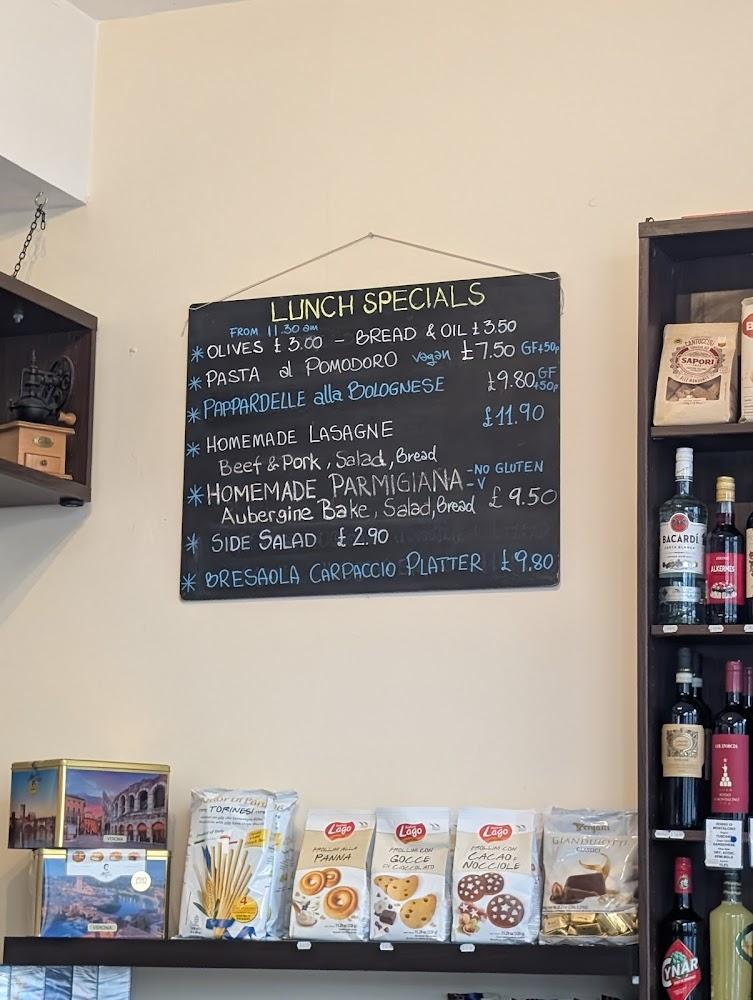 LUNCH SPECIALS
FROM 11.30 am
* OLIVES £3.00 - BREAD & OIL £3.50
* PASTA al POMODORO vegan £7.50 GF+50p
* PAPPARDELLE alla BOLOGNESE £9.80 GF +50p
£11.90
* HOMEMADE LASAGNE
Beef & Pork, Salad, Bread
* HOMEMADE PARMIGIANA - NO GLUTEN
- V
Aubergine Bake, Salad, Bread £9.50
* SIDE SALAD £2.90
* BRESAOLA CARPACCIO PLATTER £9.80
CANTUCCINI
SAPORI
BACARDÍ
ALKERMES
COL D'ORCIA
VERONA
VERONA
TORINESI
Lago
FROLLINI ALLA
PANNA
Lago
FROLLINI CON
GOCCE
DI CIOCCOLATO
Lago
FROLLINI CON
CACAO E
NOCCIOLE
Vergani
GIANDUIOTTI
CLASSICI
CYNAR